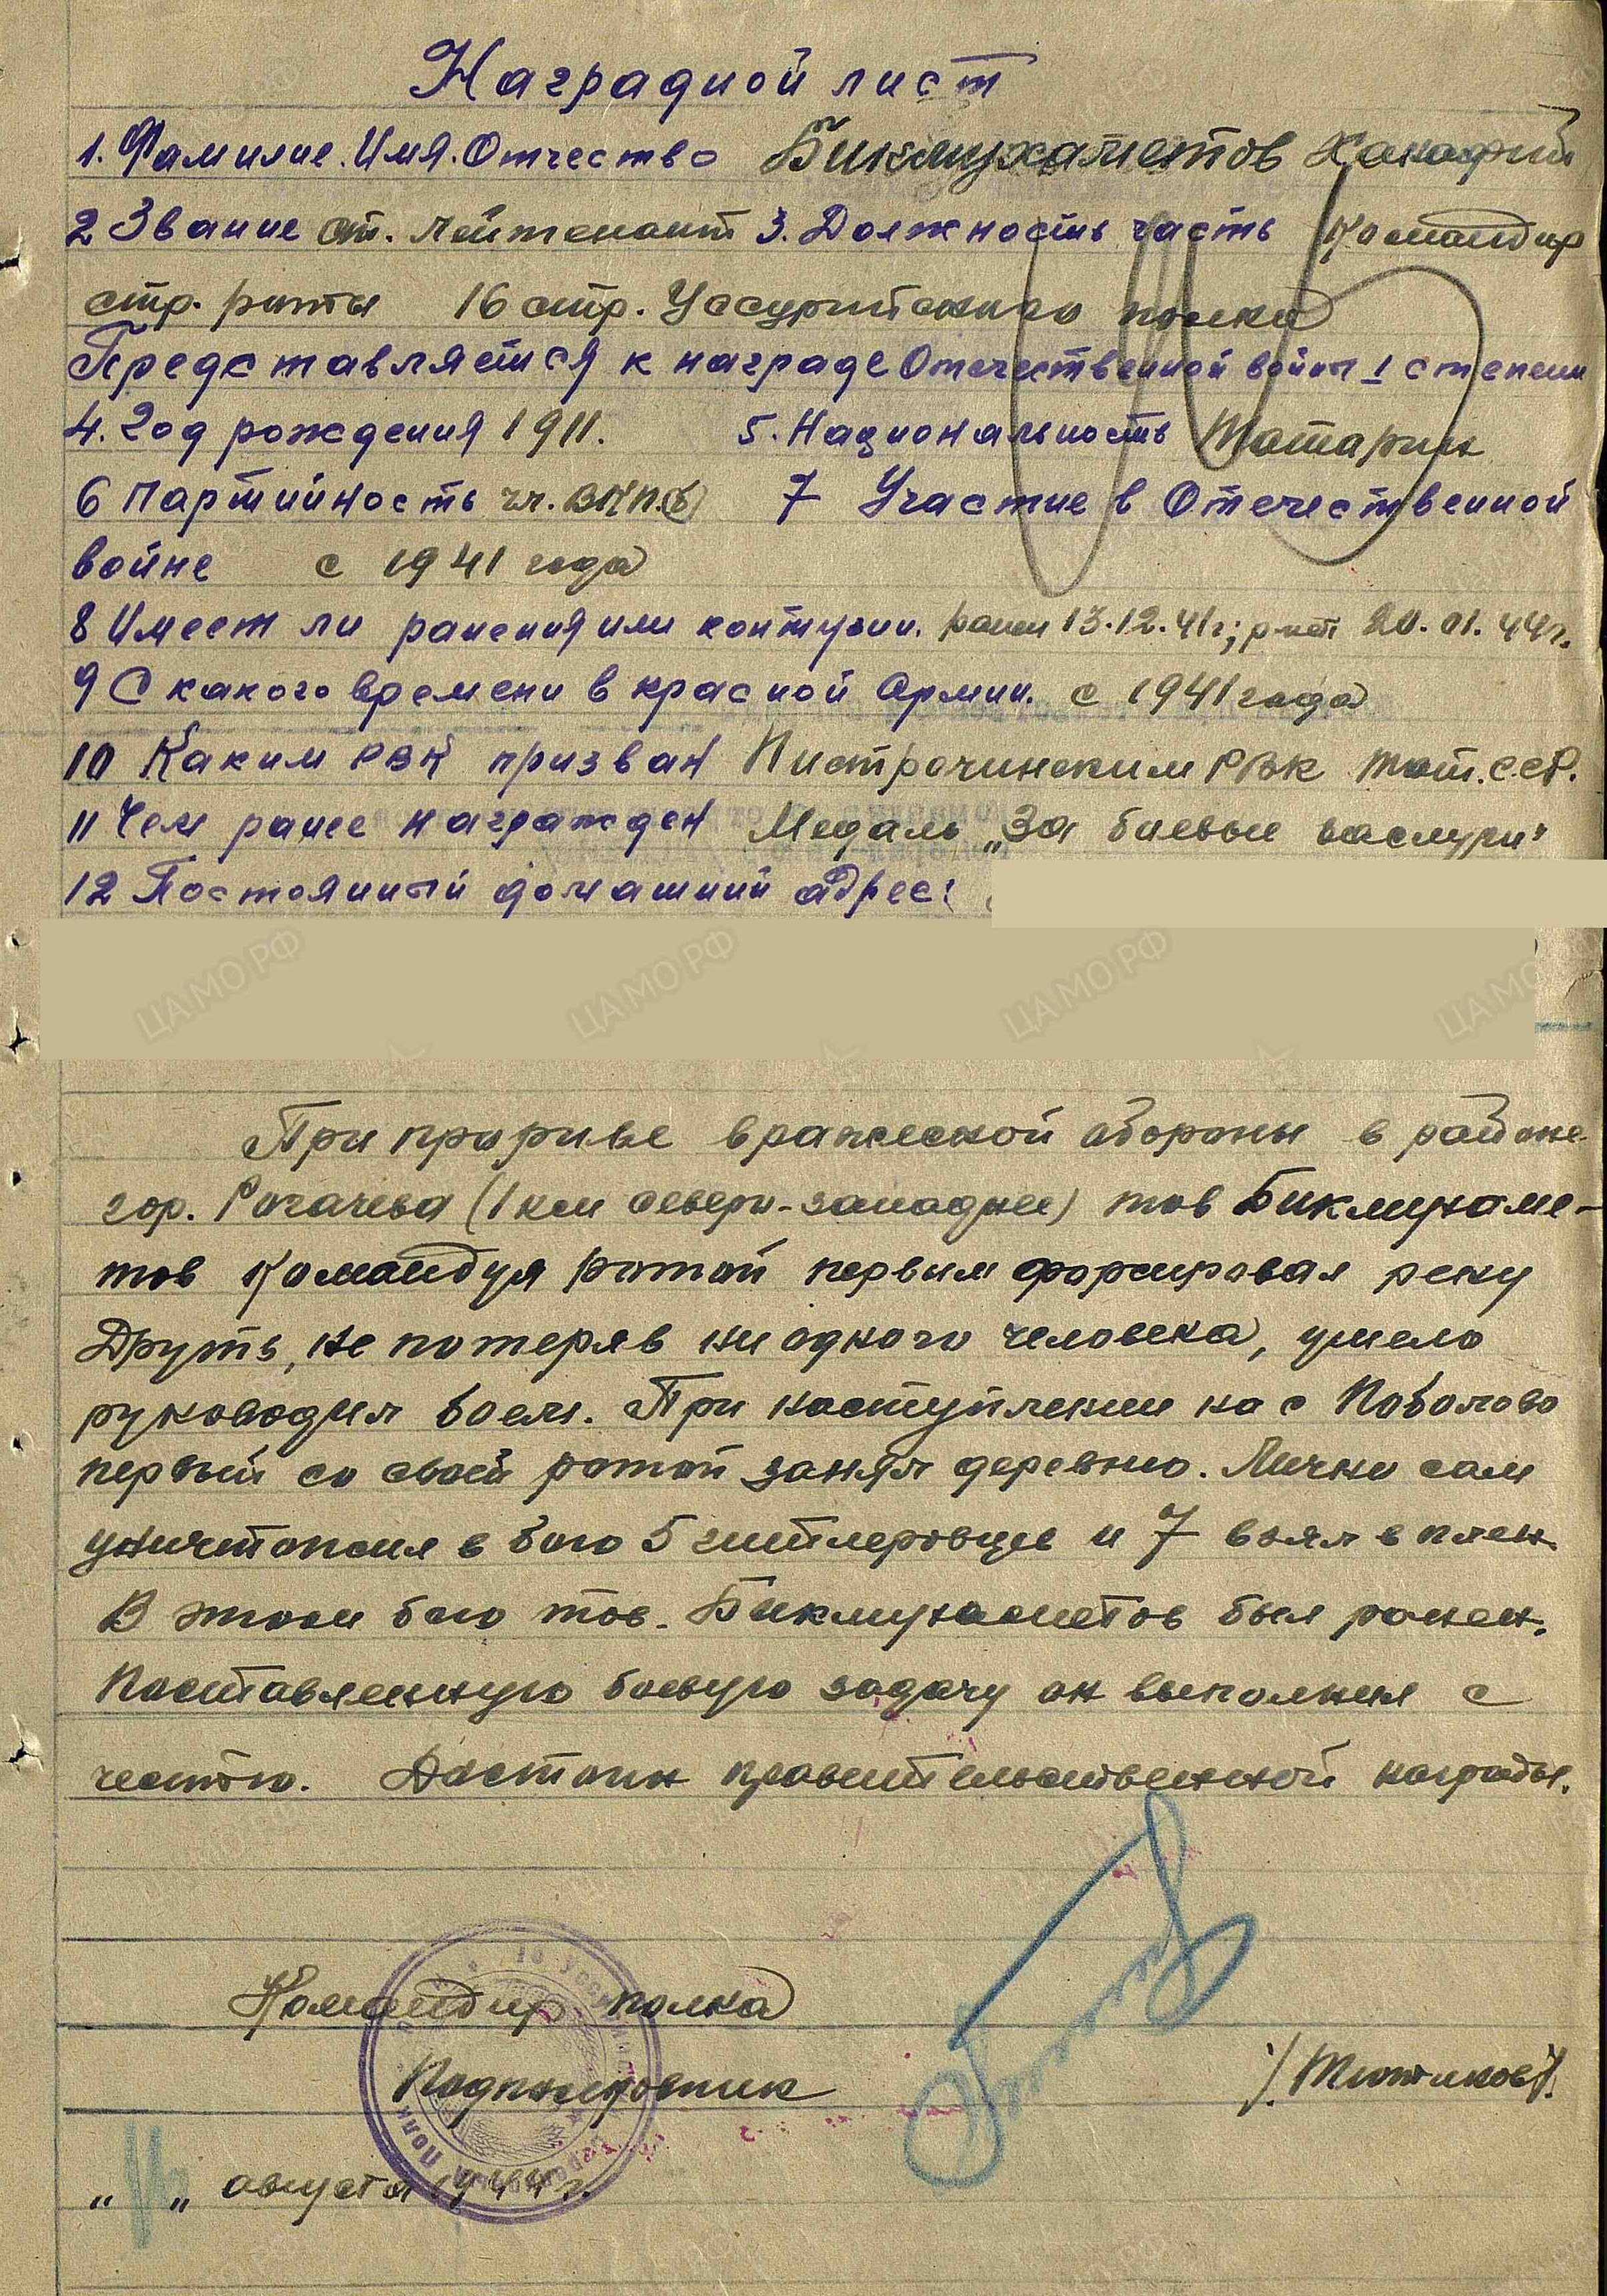 Наградной лист
1. Фамилие. Имя. Отчество Бикмухаметов Ханафий
2 Звание ст. лейтенант 3. Должность часть Командир
стр. роты 16 стр. Уссурийского полка
Представляется к награде Отечественной войны I степени
4. Год рождения 1911. 5. Национальность Татарин
6 Партийность чл. ВКП(б) 7 Участие в Отечественной
войне с 1941 года
8 Имеет ли ранения или контузии. ранен 13.12.41г; 20.01.44г.
9 С какого времени в красной Армии. с 1941 года
10 Каким РВК призван Пистречинским РВК Тат.ССР.
11 Чем ранее награжден Медаль „За боевые заслуги"
12 Постоянный домашний адрес:
ЦАМО РФ ЦАМО РФ ЦАМО РФ ЦАМО РФ
При прорыве вражеской обороны в районе
гор. Рогачева (1 км северо-западнее) тов Бикмухаме-
тов Командуя ротой первым форсировал реку
Друть, не потеряв ни одного человека, умело
руководил боем. При наступлении на с Поболово
первый со своей ротой занял деревню. Лично сам
уничтожил в бою 5 гитлеровцев и 7 взял в плен.
В этом бою тов. Бикмухаметов был ранен.
Поставленную боевую задачу он выполнил с
честью. Достоин правительственной награды.
Командир полка
Подполковник
„ „ августа 1944 г.